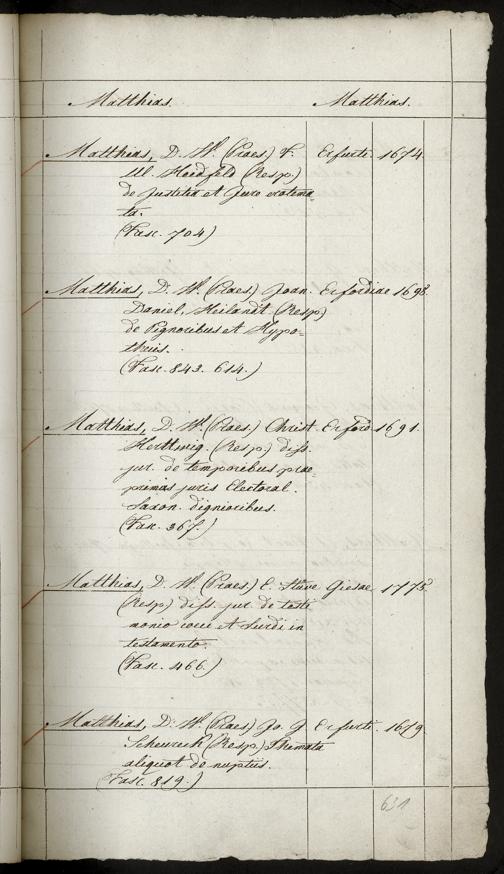 Matthias. Matthias.
Matthias, D. W. (Praes) V. Erfurti. 1674.
Ul. Heidfeld (Resp.)
de Justitia et Jure
ta.
(Fasc. 704)
Matthias, D. W. (Praes) Joan. Erfordiae 1698.
Daniel, Heilandt. (Resp)
de Pignoribus et Hypo=
thecis.
(Fasc. 843. 614.)
Matthias, D. W. (Praes.) Christ. Erford 1691.
Herttwig. (Resp.) diss.
jur. de temporibus prae
primis juris Electoral.
Saxon. dignioribus.
(Fasc. 367.)
Matthias, D. W. (Praes) E. Stüve Giesae 1775.
(Resp) diss. jur. de testi
monio coeci et surdi in
testamento.
(Fasc. 466.)
Matthias, D. W. (Praes) Jo. G Erfurti. 1679.
(Resp) Themata
aliquot de nuptiis.
(Fasc. 819.)
631